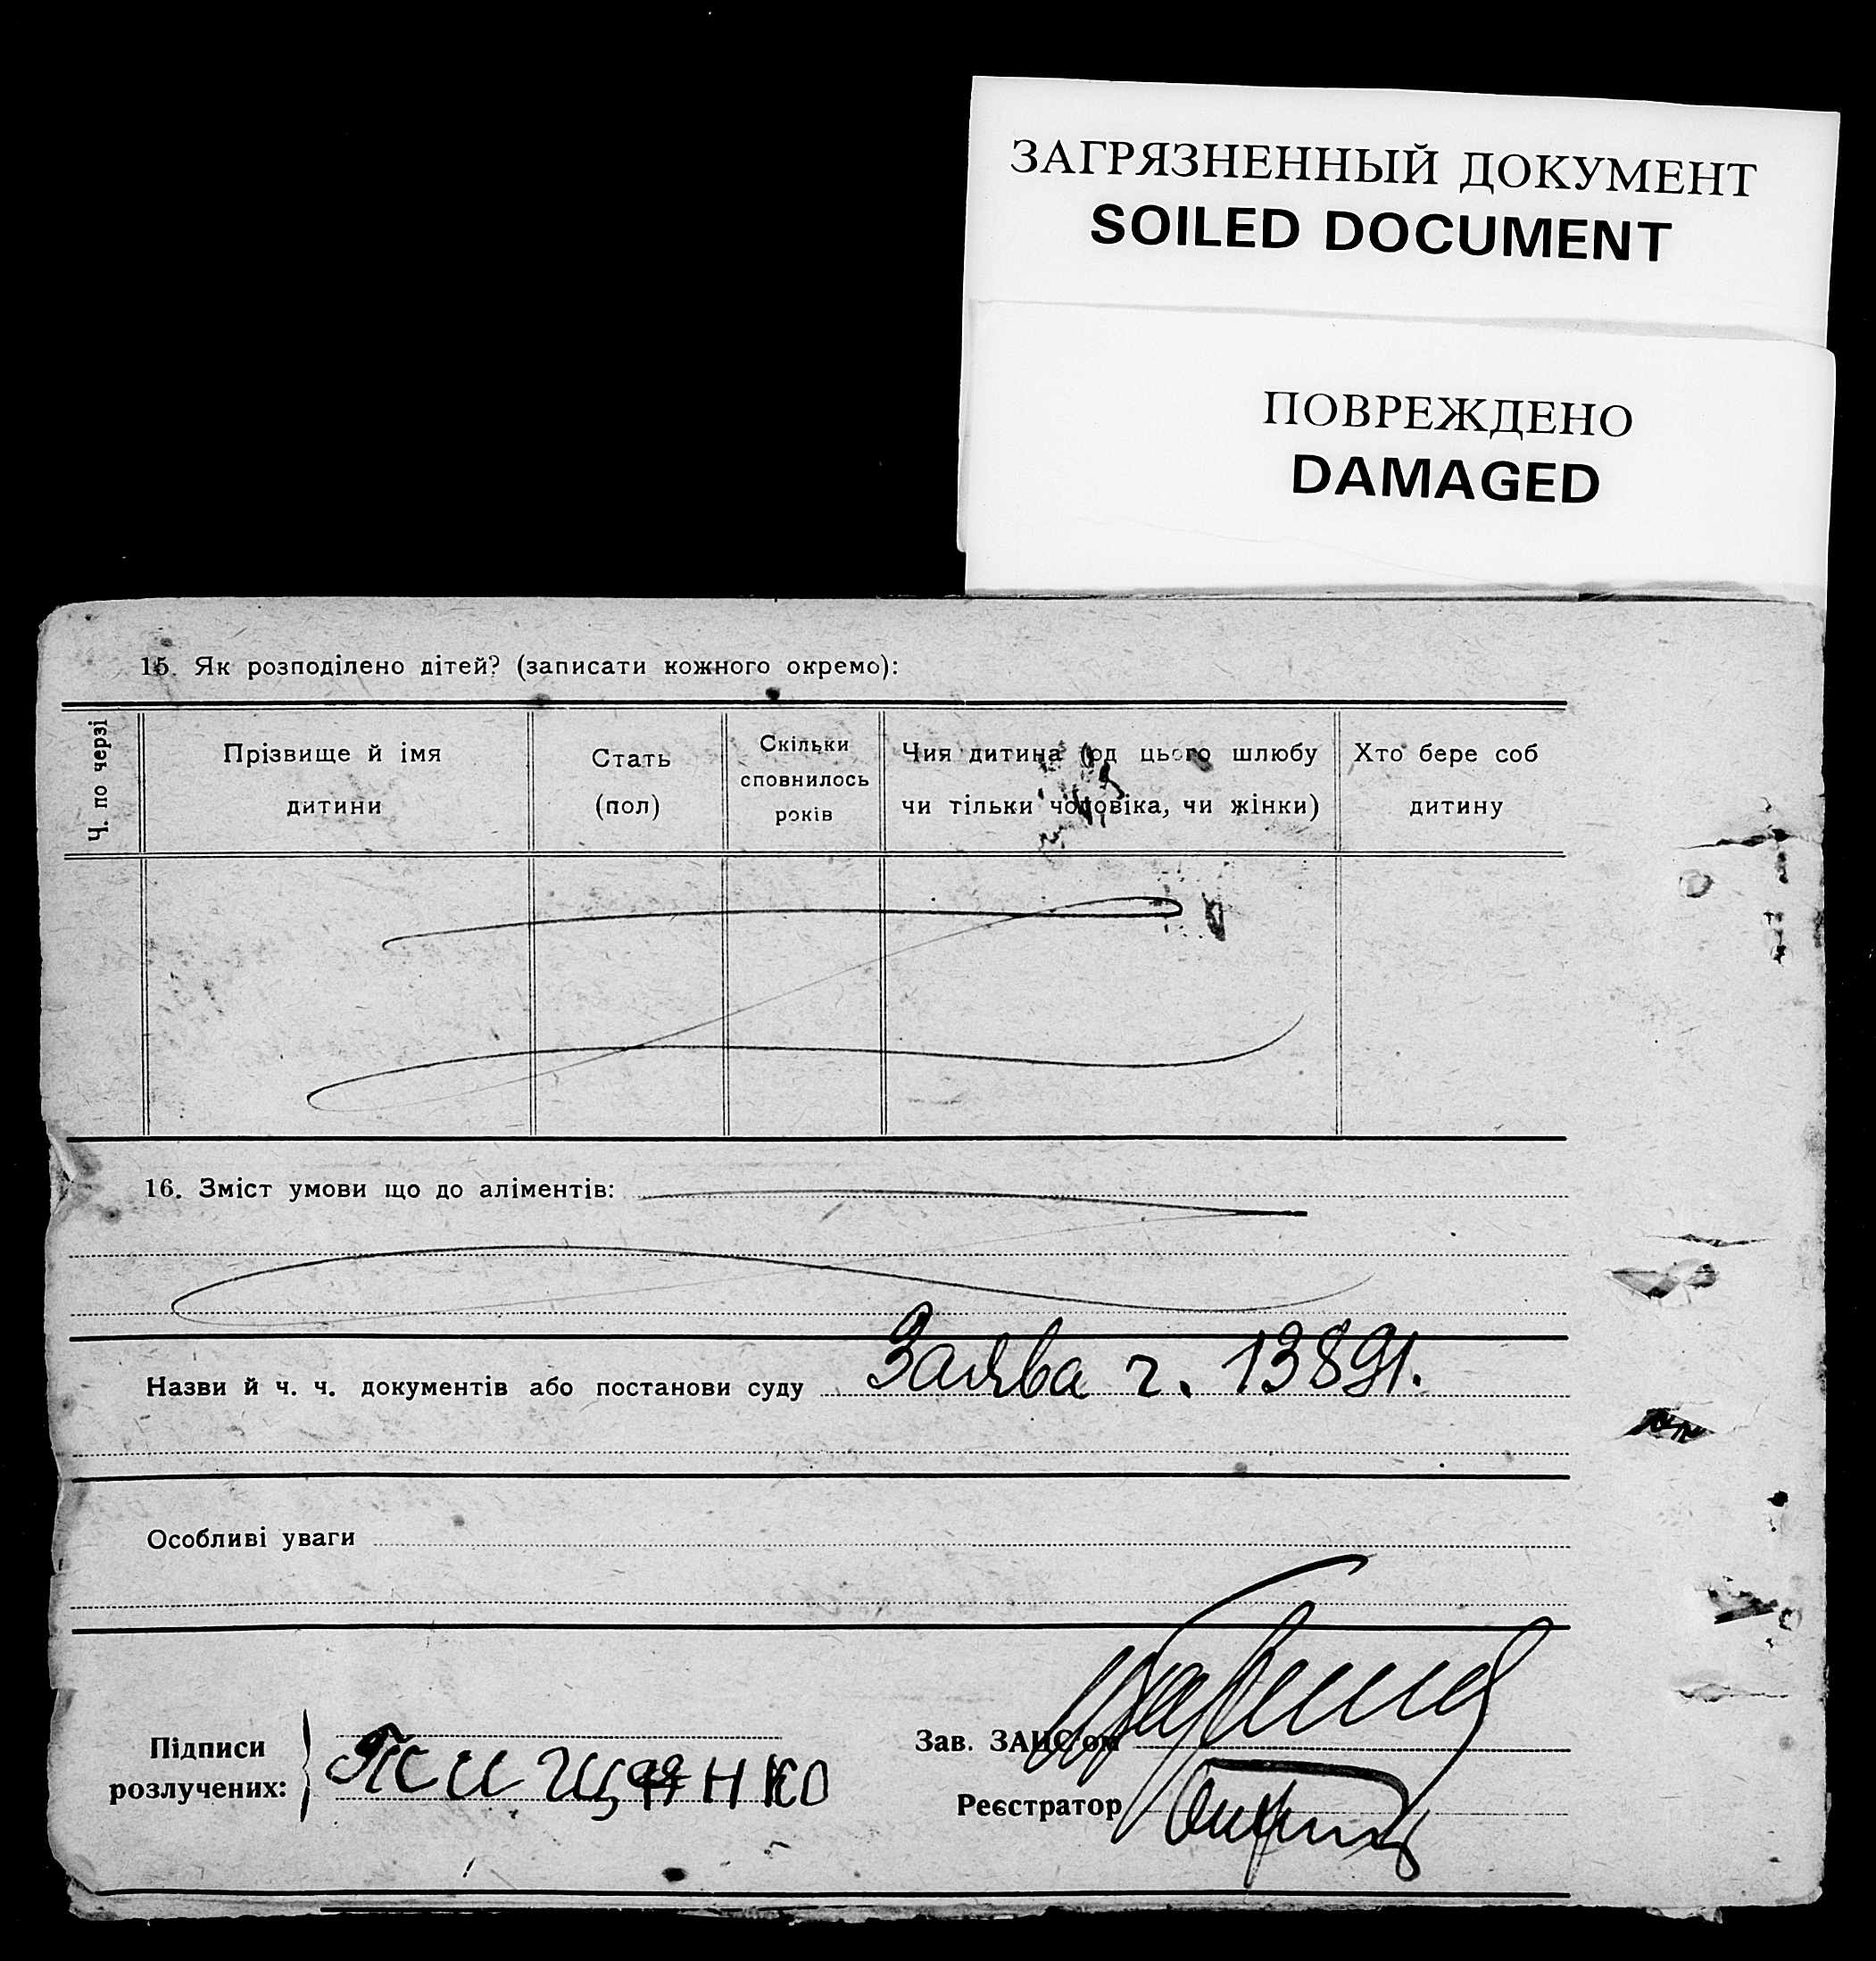 ЗАГРЯЗНЕННЫЙ ДОКУМЕНТ
SOILED DOCUMENT
ПОВРЕЖДЕНО
DAMAGED
15. Як розподілено дітей? (записати кожного окремо):
Ч. по черзі
Прізвище й імя
дитини
Стать
(пол)
Скільки
сповнилось
років
Чия дитина (од цього шлюбу
чи тільки чоловіка, чи жінки)
Хто бере соб
дитину
16. Зміст умови що до аліментів:
Назви й ч. ч. документів або постанови суду Заява ч. 13891.
Особливі уваги
Підписи
розлучених:
Зав. ЗАГС'ом
Реєстратор